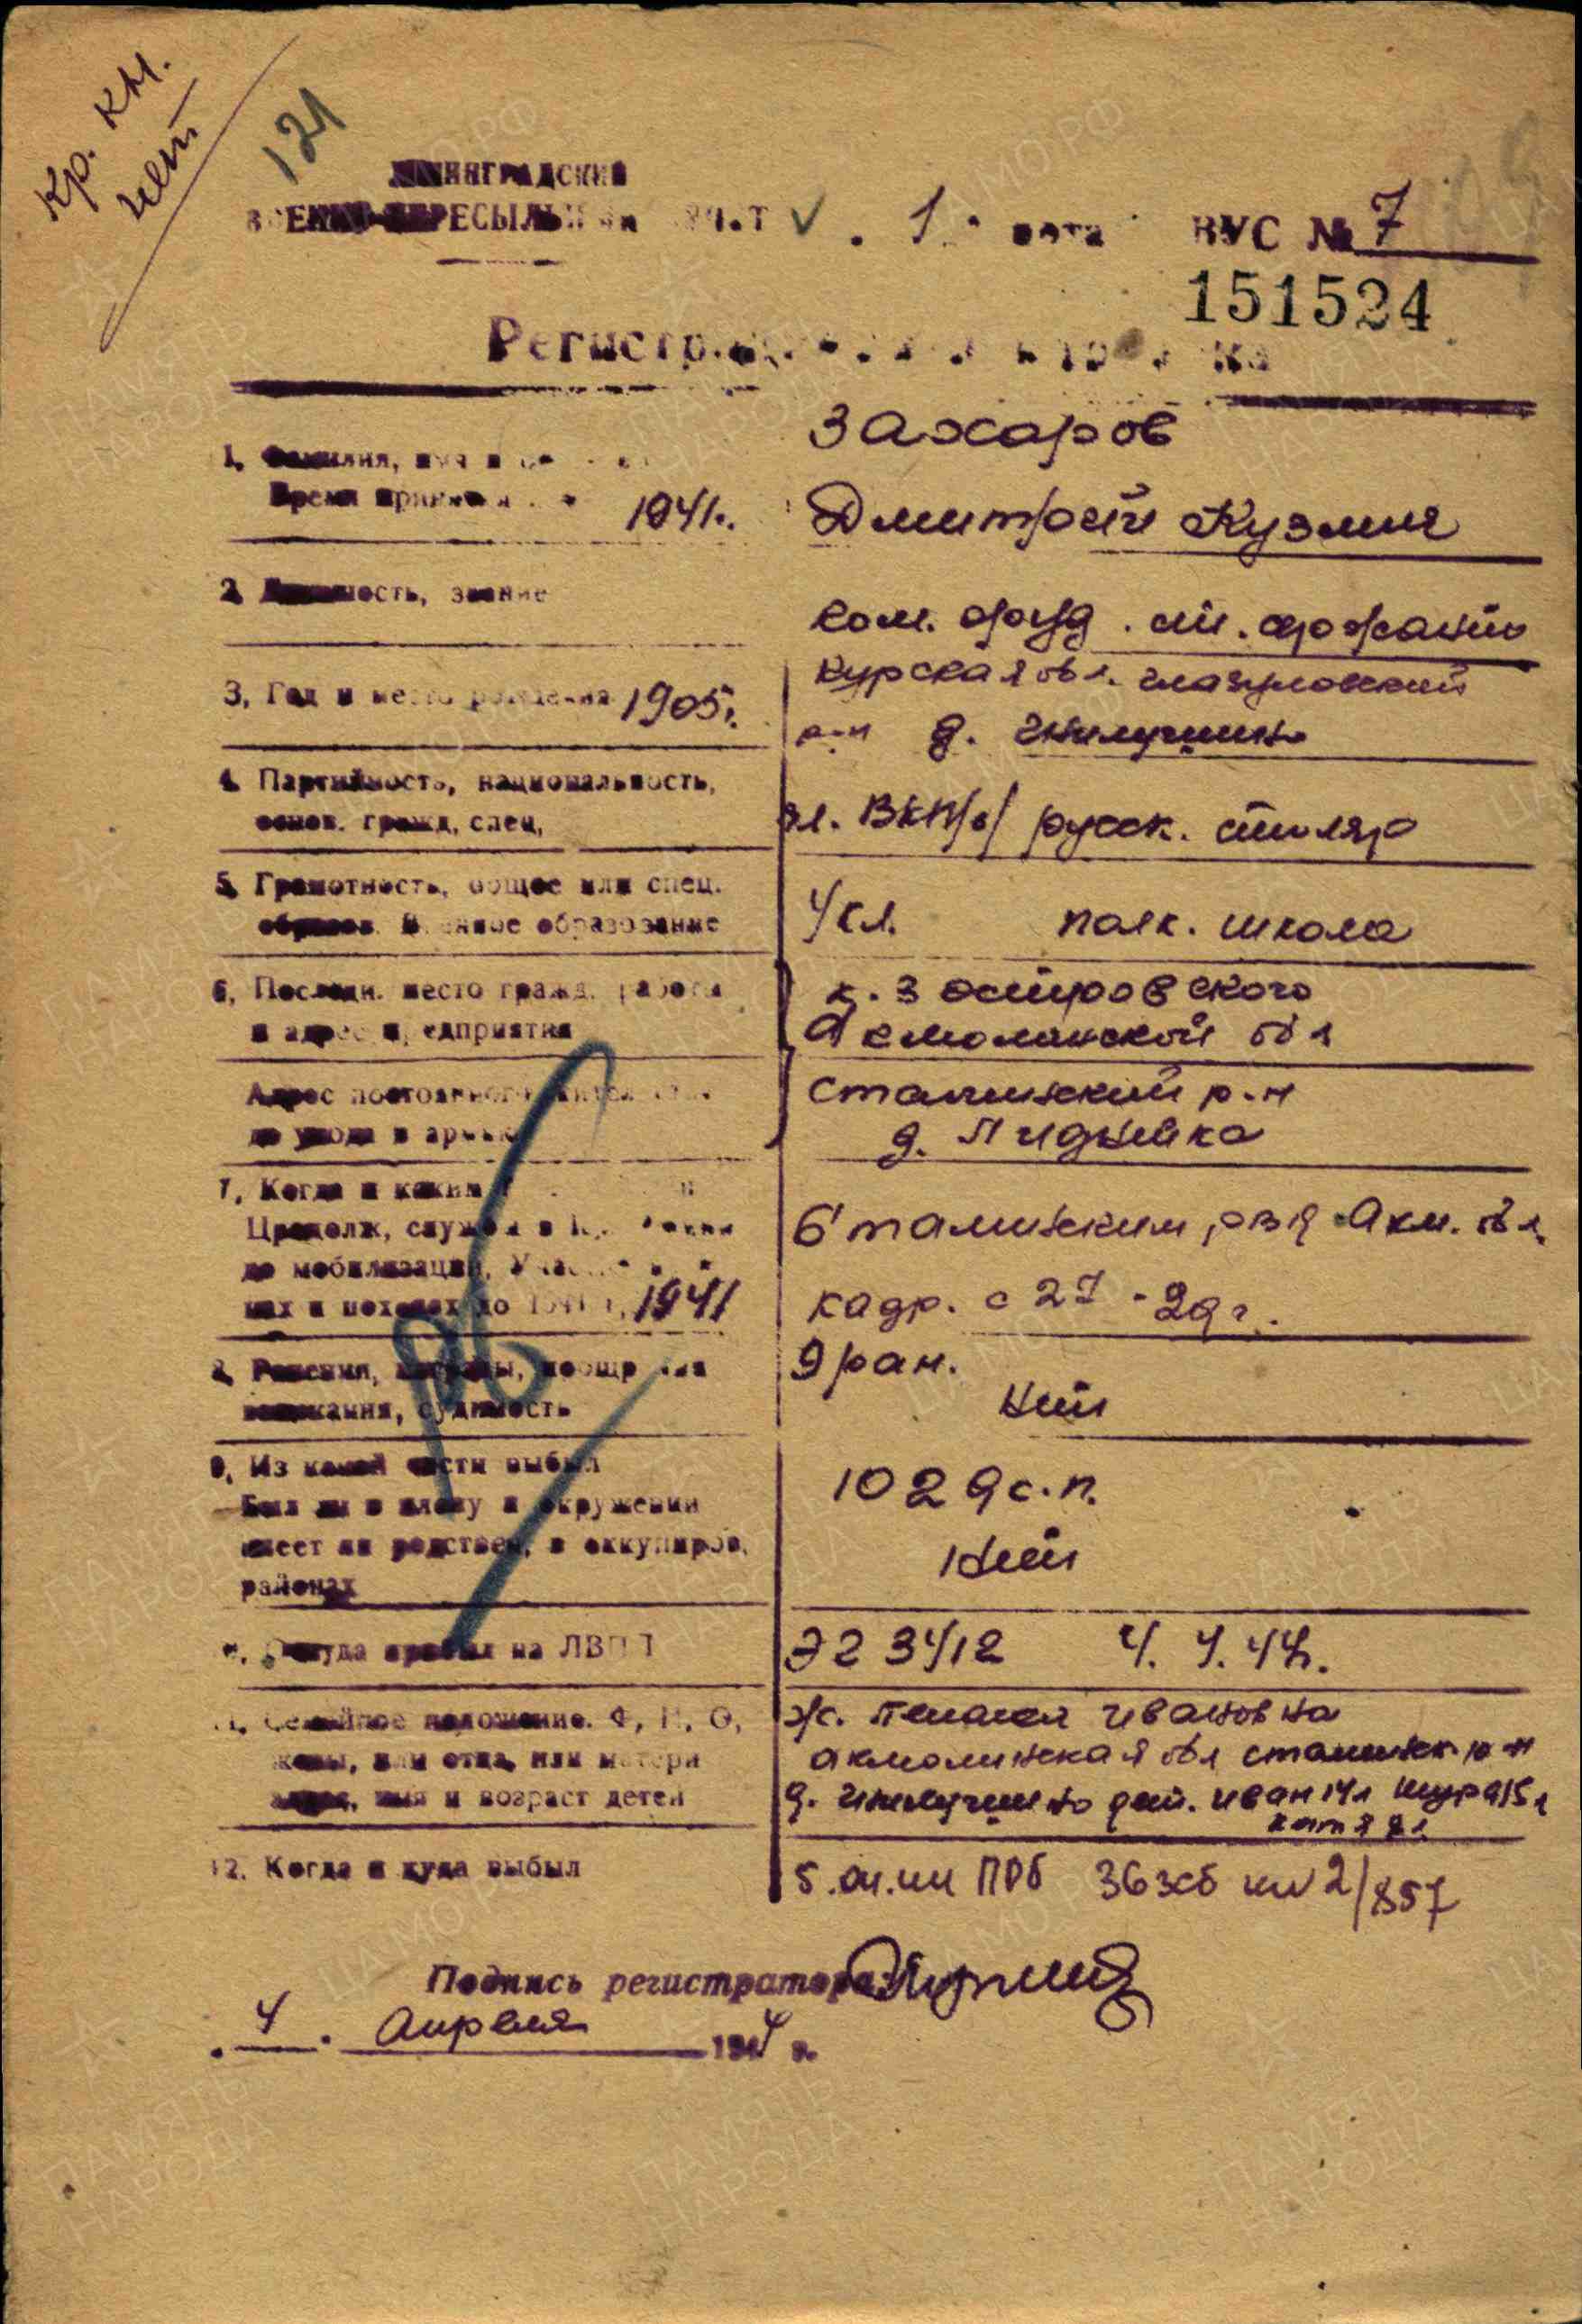 Кр. кн.
нет
121
ЛЕНИНГРАДСКИЙ
ВОЕННО-ПЕРЕСЫЛЬНЫЙ V . 1 . рота ВУС № 7
151524
1. Фамилия, имя и Захаров
Время принятия 1941г. Дмитрей Кузмич
2. Должность, звание
ком. оруд. ст. сержант
3. Год и место рождения 1905г. Курская обл. глазуновский
р-н д.
4. Партийность, национальность,
основ. гражд. спец. чл. ВКП/б/ русск. столяр
5. Грамотность, общее или спец.
образов. Военное образование 4 кл. полк. школа
6. Последн. место гражд. работы к-з островского
и адрес предприятия Акмолинской обл
Адрес постоянного жительства Сталинский р-н
до ухода в армию д.
7. Когда и каким
Продолж. службы в Сталинским рвк Акм. обл.
до мобилизации,
нах и походах до 1941 г. 1941 кадр. с 27 - 29 г.
8. Ранения, награды, поощрения 9 ран.
взыскания, судимость Нет
9. Из какой части выбыл 1029 с.п.
Был ли в плену и окружении
имеет ли родствен. в оккупиров. Нет
районах
Откуда прибыл на ЛВПП ЭГ 3412 4. 4. 44г.
11. Семейное положение. Ф, И, О, ж. Ивановна
жены, или отца, или матери акмолинская обл сталинск. р-н
адрес, имя и возраст детей д. дет. Иван 14л Шура 15л
Катя
12. Когда и куда выбыл 5.04.44 ПРБ 36 зсб 2/857
Подпись регистратора
" 4 " Апреля 1944 г.
ПАМЯТЬ
НАРОДА
ЦАМО.РФ